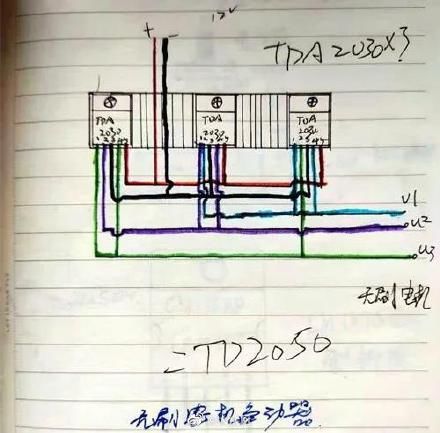 12V
+ -
TDA2030×3
TDA
2030
1 2 3 4 5
TDA
2030
1 2 3 4 5
TDA
2030
1 2 3 4 5
U1
U2
U3
无刷电机
=TD2050
无刷电机启动器